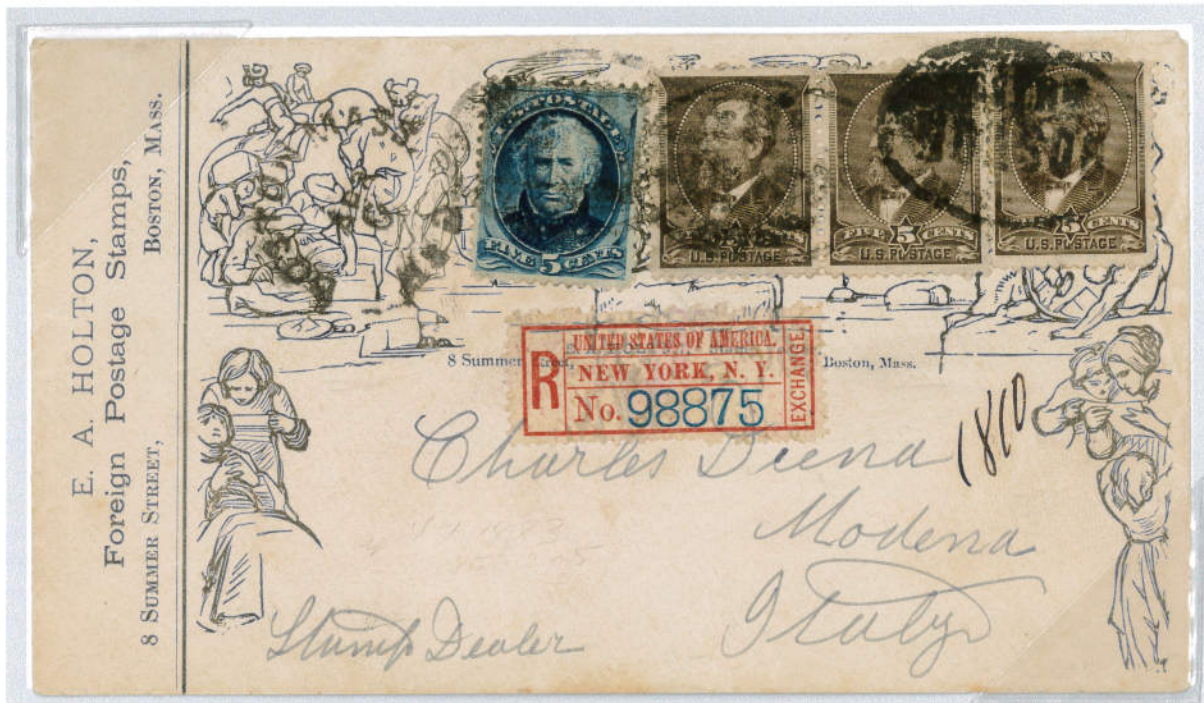 E. A. HOLTON,
Foreign Postage Stamps,
8 SUMMER STREET, BOSTON, MASS.
U.S. POSTAGE
FIVE 5 CENTS
U.S. POSTAGE
FIVE 5 CENTS
U.S. POSTAGE
5 CENTS
U.S. POSTAGE
8 Summer Boston, Mass.
R
UNITED STATES OF AMERICA.
NEW YORK, N. Y.
No. 98875
EXCHANGE
1810
Charles Diena
Modena
Italy
Stamp Dealer